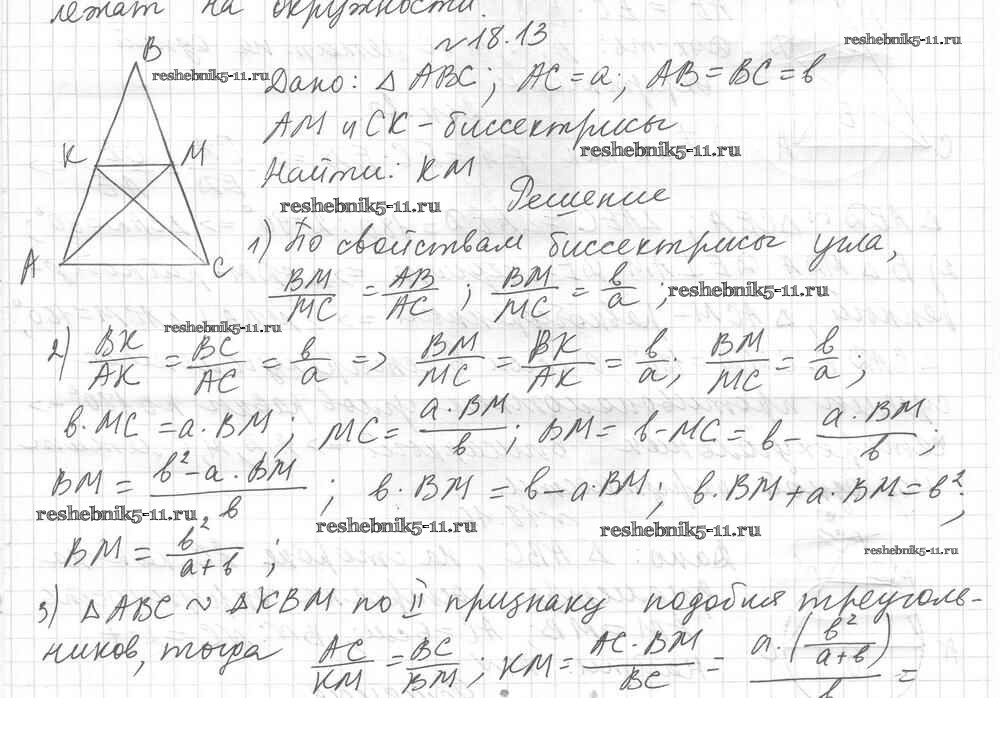 лежат на окружности.
~18.13
reshebnik5-11.ru
B
reshebnik5-11.ru
Дано: △ ABC; AC = a; AB = BC = b
AM и CK - биссектрисы
K M
reshebnik5-11.ru
Найти: KM
reshebnik5-11.ru
Решение
A C
1) По свойствам биссектрисы угла,
BM/MC = AB/AC ; BM/MC = b/a ;
reshebnik5-11.ru
reshebnik5-11.ru
2) BK/AK = BC/AC = b/a => BM/MC = BK/AK = b/a; BM/MC = b/a ;
b·MC = a·BM; MC = a·BM/b; BM = b-MC = b - a·BM/b;
BM = b²-a·BM/b ; b·BM = b-a·BM; b·BM+a·BM=b²;
reshebnik5-11.ru
reshebnik5-11.ru
reshebnik5-11.ru
BM = b²/a+b ;
reshebnik5-11.ru
3) △ABC ~ △KBM по II признаку подобия треуголь-
ников, тогда AC/KM = BC/BM ; KM = AC·BM/BC = a·(b²/a+b)/b =